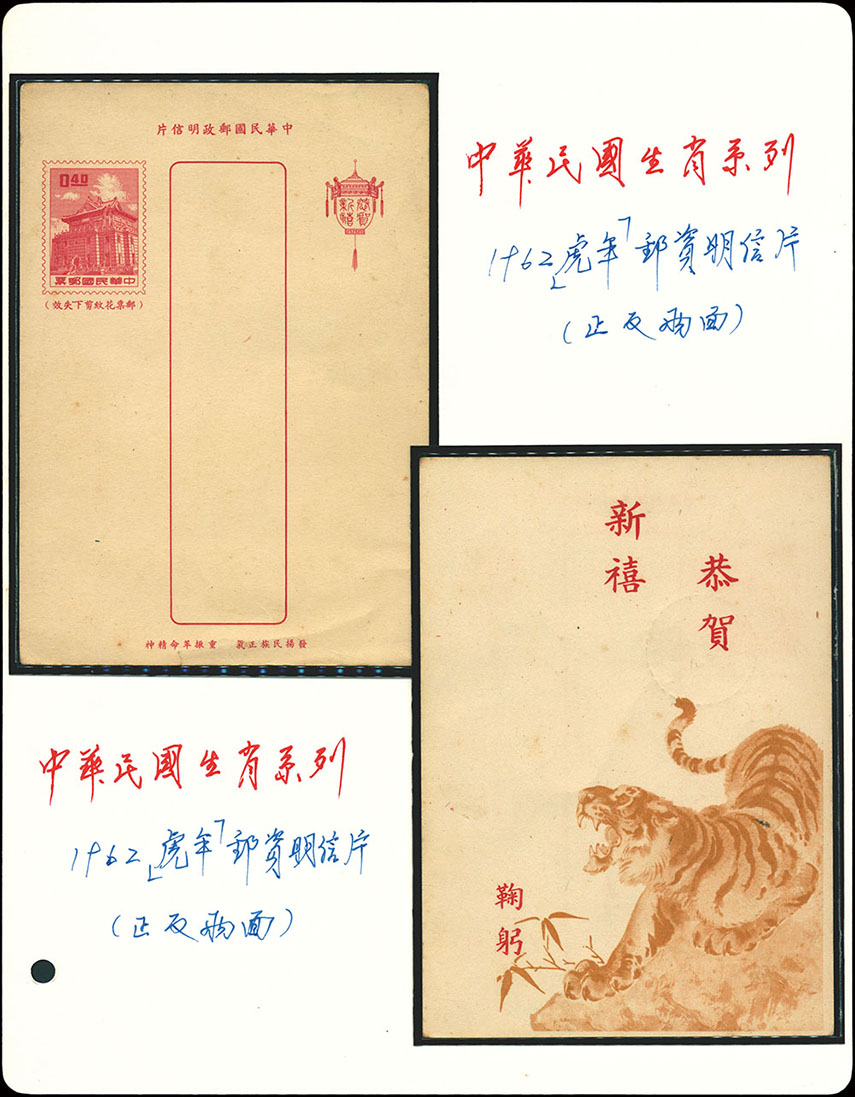 中華民國郵政明信片
0.40
中華民國郵票
（郵票花紋剪下失效）
恭賀
新禧
發揚民族正氣 重振革命精神
中華民國生肖系列
1962「虎年」郵資明信片
(正反兩面)
恭賀
新禧
鞠躬
中華民國生肖系列
1962「虎年」郵資明信片
(正反兩面)